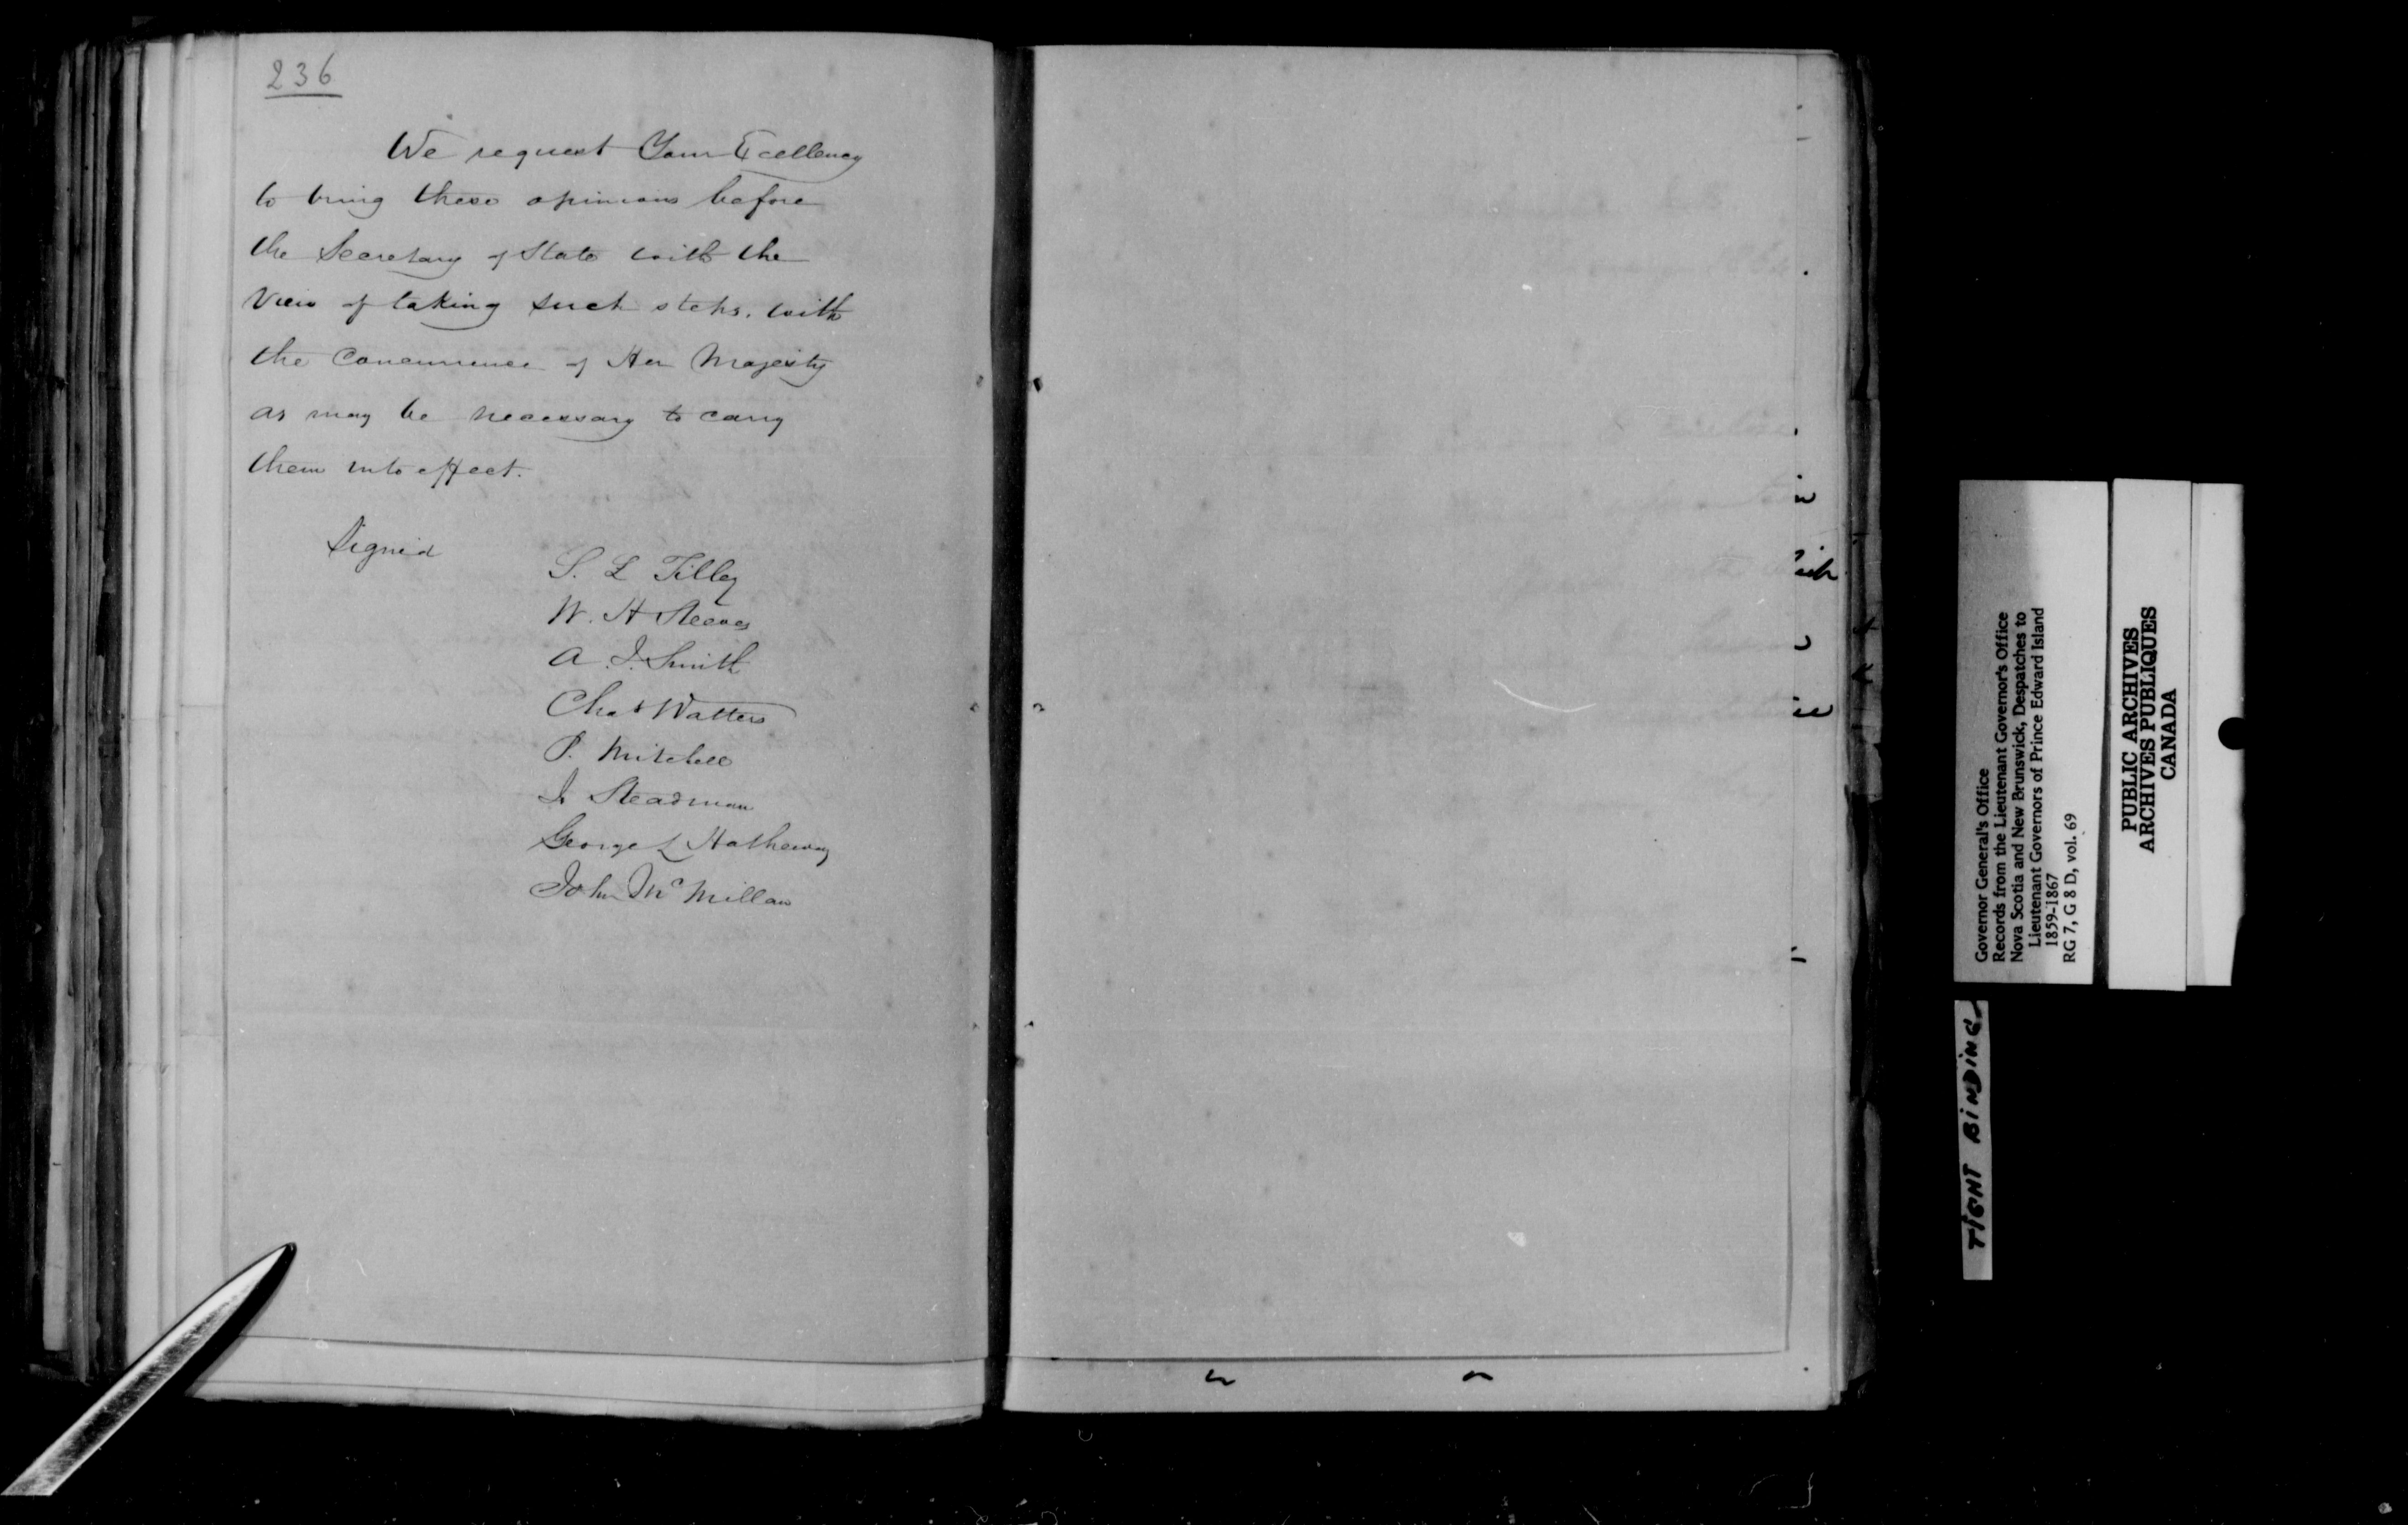 236
We request Your Excellency
to bring these opinions before
the Secretary of State with the
View of taking such steps, with
the Concurrence of Her Majesty
as may be necessary to carry
them into effect.
Signed
S. L Tilley
W. H Steeves
A. J. Smith
Chas Watters
P. Mitchell
J. Steadman
George L Hatheway
John McMillan
Governor General's Office
Records from the Lieutenant Governor's Office
Nova Scotia and New Brunswick, Despatches to
Lieutenant Governors of Prince Edward Island
1859-1867
RG 7, G 8 D, vol. 69
PUBLIC ARCHIVES
ARCHIVES PUBLIQUES
CANADA
TIGHT BINDING